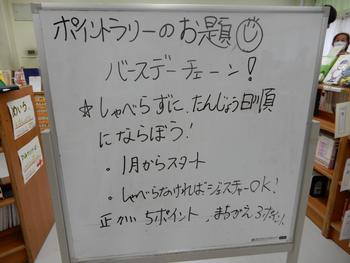 ポイントラリーのお題
バースデーチェーン!
☆しゃべらずに、たんじょう日順
にならぼう!
・1月からスタート
・しゃべらなければジェスチャーOK!
正かい 5ポイント、まちがえ 3ポイント